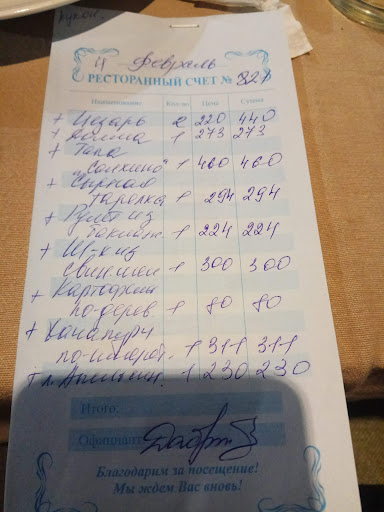 4 Февраль
РЕСТОРАННЫЙ СЧЕТ № 328
Наименование Кол-во Цена Сумма
+ Цезарь 2 220 440
+ 1 273 273
+ Тапа
"Саихино" 1 460 460
+ Сырная
тарелка 1 294 294
+ Рулет из
баклаж. 1 224 224
+ Ш-к из
свинины 1 300 300
+ Картофель
по-дерев 1 80 80
+ Хачапури
по-имерет. 1 311 311
+ 1 230 230
Итого:
Официант
Благодарим за посещение!
Мы ждем Вас вновь!